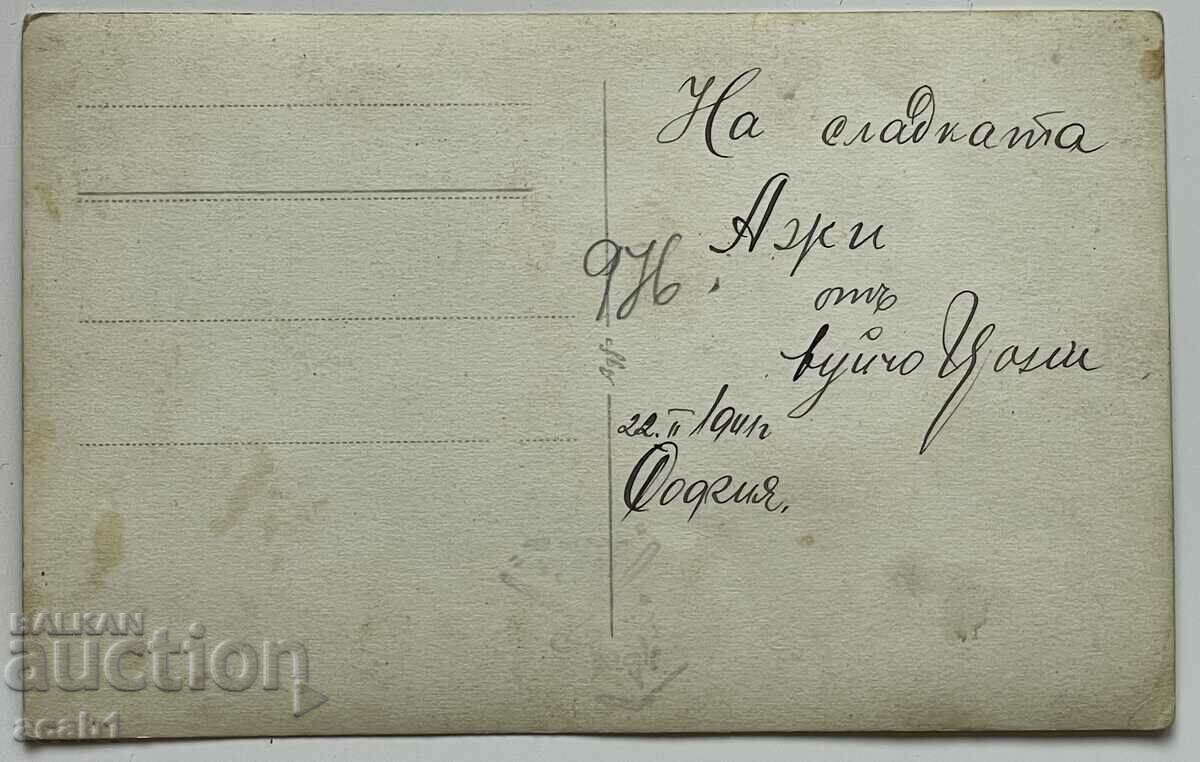 На сладката
Ажи
отъ
вуйчо Цони
22.II 1941г
София.
ЯН.
BALKAN
auction
acab1